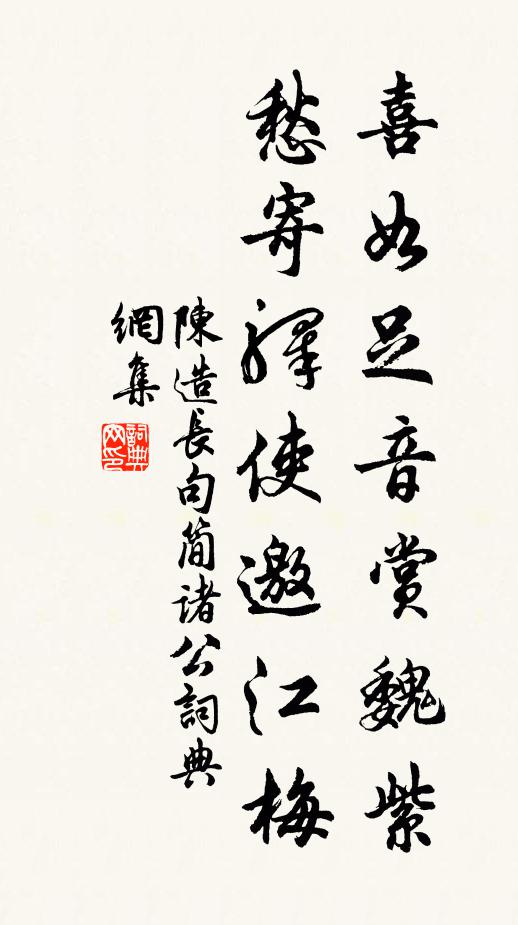 喜如足音賞魏紫
愁寄驛使邀江梅
陳造長句簡諸公詞典
網集
詞典網印